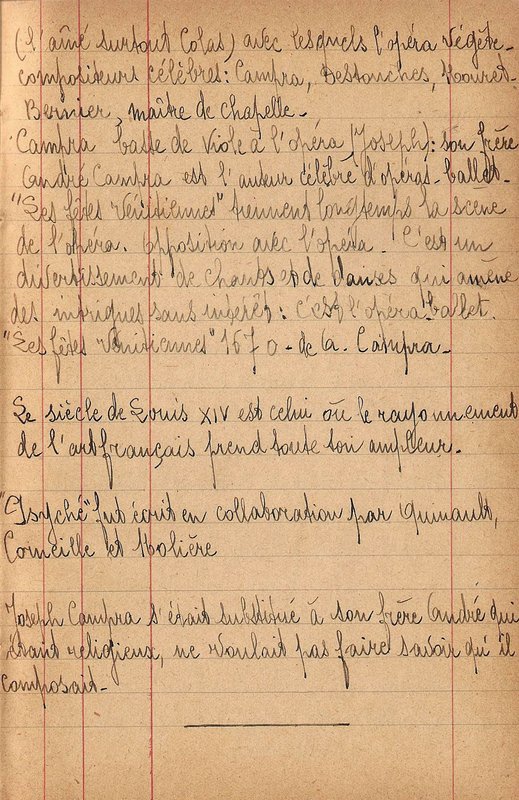 (l'aîné surtout Colas) avec lesquels l'opéra végète-
compositeurs célèbres: Campra, Destouches, Mouret-
Bernier, maître de chapelle-
Campra basse de viole à l'opéra (Joseph): son frère
André Campra est l'auteur célèbre d'opéras-ballet-
"Les fêtes Vénitiennes" tiennent longtemps la scène
de l'opéra. Opposition avec l'opéra. C'est un
divertissement de chants et de danses qui amène
des intrigues sans intérêt: c'est l'opéra-ballet.
"Les fêtes Vénitiennes" 1670-de A. Campra-
Le siècle de Louis XIV est celui où le rayonnement
de l'art français prend toute son ampleur.
"Psyché" fut écrit en collaboration par Quinault,
Corneille et Molière
Joseph Campra s'était substitué à son frère André qui
étant religieux, ne voulait pas faire savoir qu'il
composait-